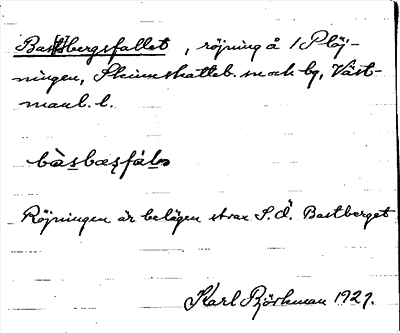 Bastbergsfallet, röjning å 1 Plöj-
ningen, Skinnskatteb. sn och bg, Väst-
manl. l.
bàsbæșfál
Röjningen är belägen strax S. ö. Bastberget
Karl Björkman 1929.